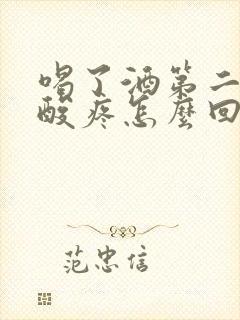 喝了酒第二
酸疼怎麼回
范忠信